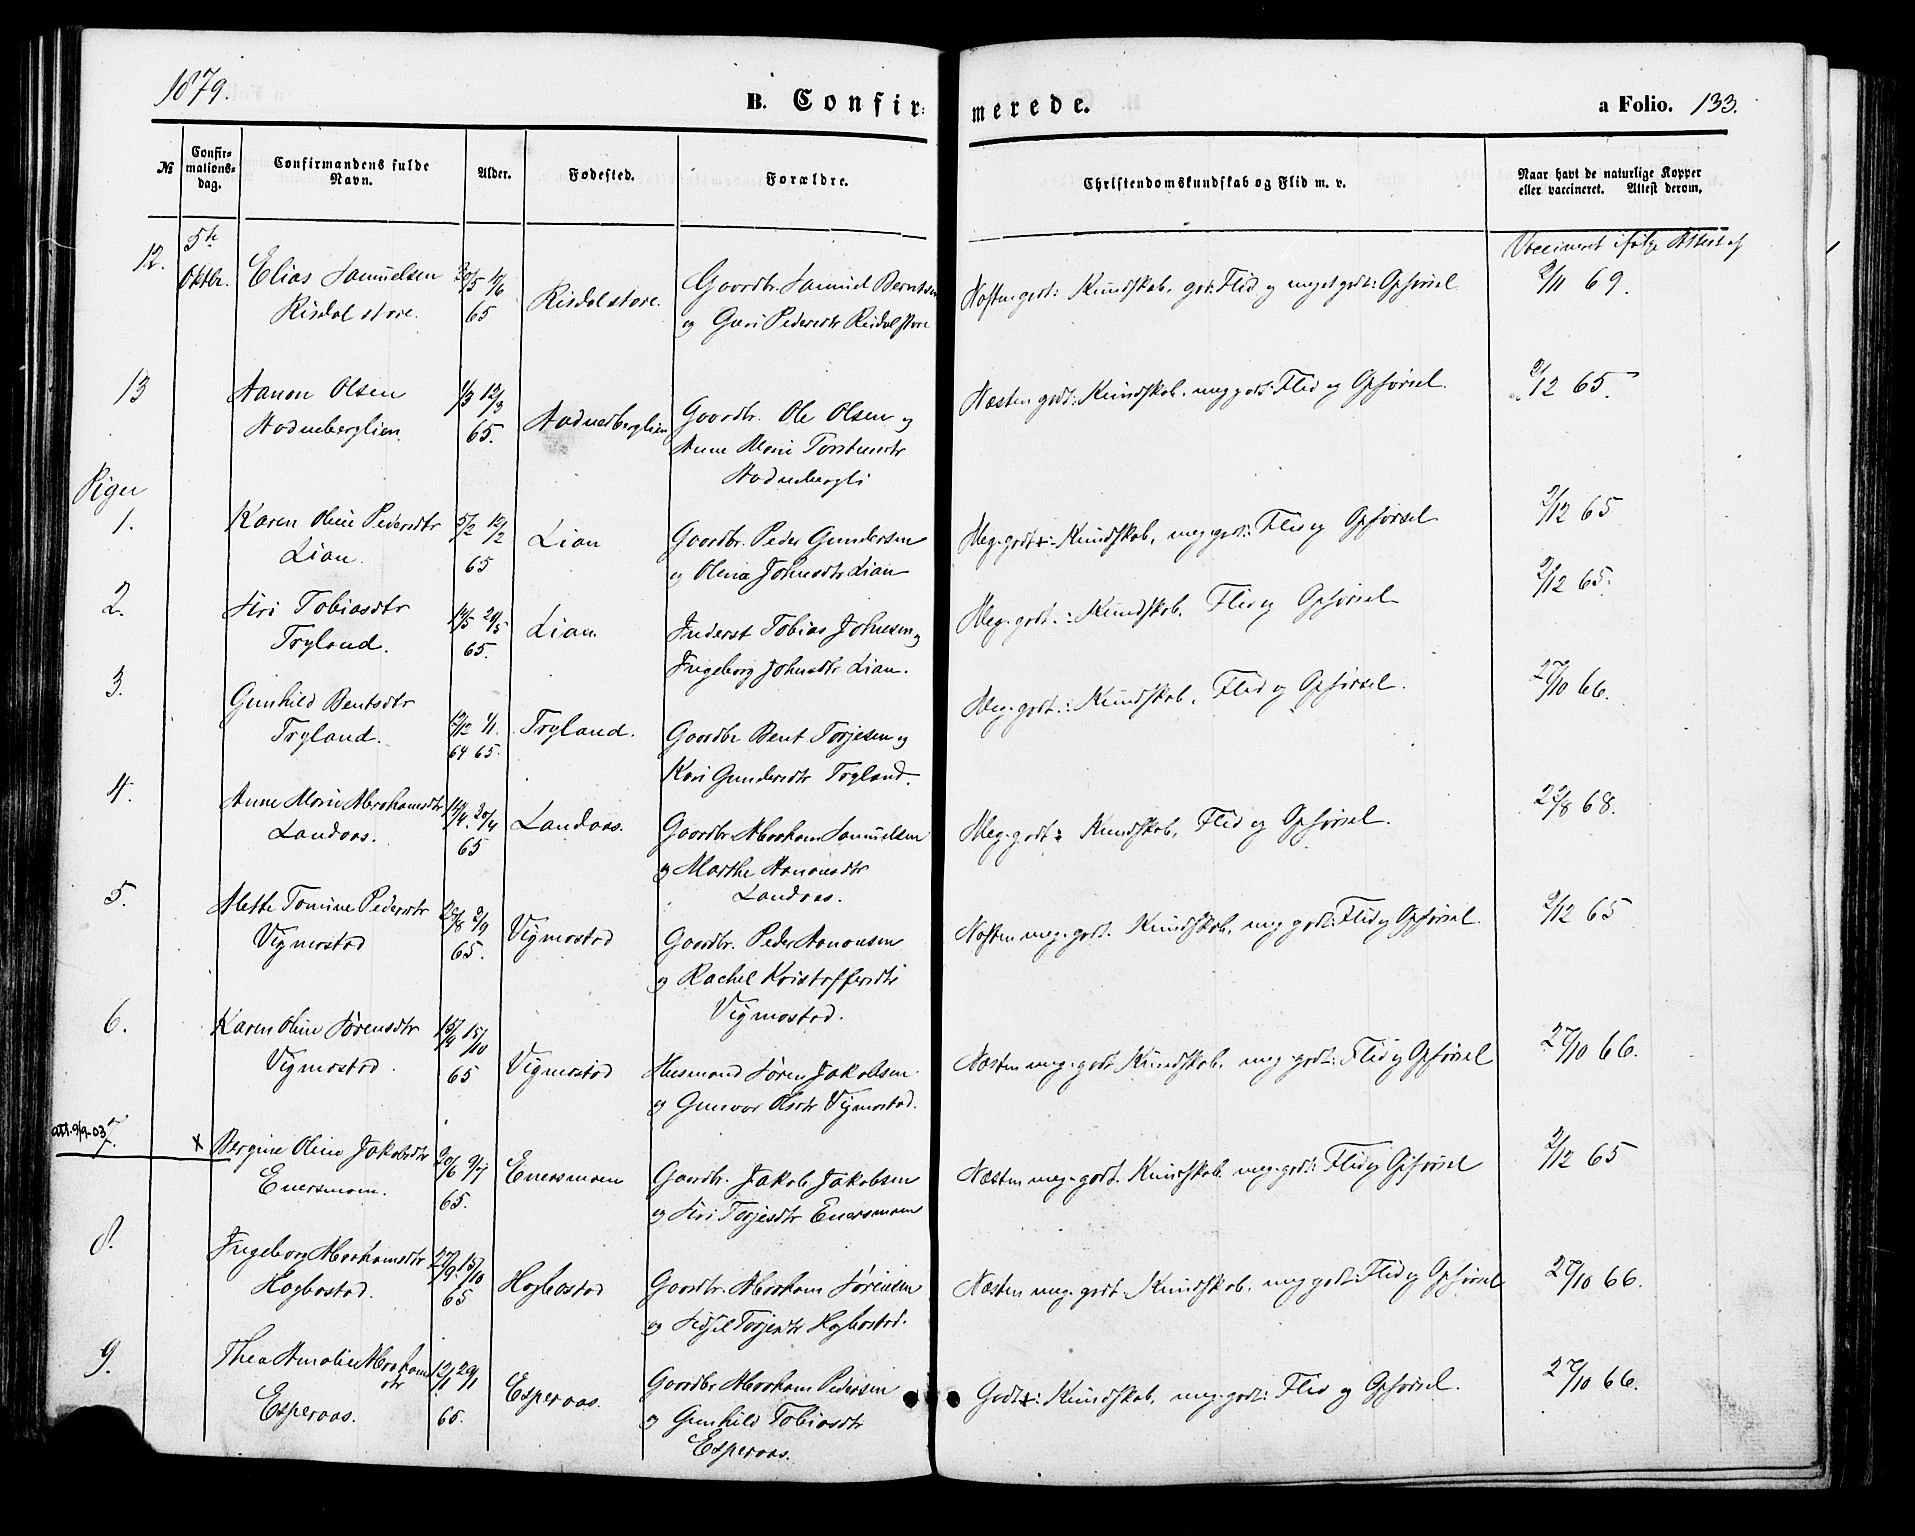 1879.
B. Confir-
merede.
a Folio. 133.
№
Confir-
mations-
dag.
Confirmandens fulde
Navn.
Alder.
Fødested.
Forældre.
Christendomskundskab og Flid m. v.
Naar havt de naturlige Kopper
eller vaccineret. Attest derom.
Vaccineret ifølge Attest af
12. 5te Oktbr. Elias Samuelsen 20/5 15/6 Gaardbr. Samuel Berntsen
Risdal store. 65 Risdal store. og Guri Pedersdtr Risdal store
Næsten godt: Kundskab, god: Flid og meget godt: Opførsel 2/11 69.
13 Aanon Olsen 1/3 12/3
Aadneberglien. 65. Aadneberglien Gaardbr. Ole Olsen og
Anne Marie Torstensdtr
Aadnebergli
Næsten godt: Kundskab, meg godt: Flid og Opførsel. 2/12 65.
Piger
1. Karen Oline Pedersdtr 5/2 12/2
Lian. 65 Lian Gaardbr. Peder Gundersen
og Olena Johnsdtr Lian
Meg. godt: Kundskab, meg. godt: Flid og Opførsel 2/12 65
2. Siri Tobiasdtr 14/5 24/5
Tryland. 65. Lian. Inderst Tobias Johnsen og
Ingeborg Johnsdtr Lian.
Meg. godt.: Kundskab, Flid og Opførsel 2/12 65.
3. Gunhild Bentsdtr 12/12 1/1
Tryland. 64 65. Tryland. Gaardbr Bent Torjesen og
Kari Gundersdtr Tryland.
Meg. godt.: Kundskab, Flid og Opførsel. 27/10 66.
4. Anne Marie Abrahamsdtr 14/4. 30/4
Landaas. 65 Landaas. Gaardbr Abraham Samuelsen
og Marthe Aanonsdtr
Landaas.
Meg. godt: Kundskab, Flid og Opførsel. 22/8 68.
5. Mette Tomine Pedersdtr 25/8 3/9
Vigmostad 65. Vigmostad Gaardbr. Peder Aanonsen
og Rachel Kristoffersdtr
Vigmostad.
Næsten meg. godt. Kundskab, meg godt: Flid og Opførsel. 2/12 65
6. Karen Oline Sørensdtr 15/10
Vigmostad. 65 Vigmostad Husmand Søren Jakobsen
og Gunvor Olsdtr Vigmostad.
Næsten meg. godt Kundskab, meg. godt: Flid og Opførsel 27/10 66.
att. 9/9-03 7. x Bergine Oline Jakobsdtr 20/6 9/7
Enersmoen. 65. Enersmoen Gaardbr. Jakob Jakobsen
og Siri Torjesdtr Enersmoen
Næsten meg. godt. Kundskab. meg. godt: Flid og Opførsel 2/12 65
8. Ingeborg Abrahamsdtr 27/9. 15/10
Høgbostad. 65 Høgbostad Gaardbr. Abraham Sørensen
og Sidsel Torjesdtr Høgbostad.
Næsten meg. godt. Kundskab, meg godt: Flid og Opførsel 27/10 66.
9. Thea Amalie Abrahams
dtr 12/1 29/1
Esperaas. 65. Esperaas. Gaardbr Abraham Pedersen
og Gunhild Tobiasdtr
Esperaas.
Godt: Kundskab, meg. godt: Flid og Opførsel. 27/10 66.